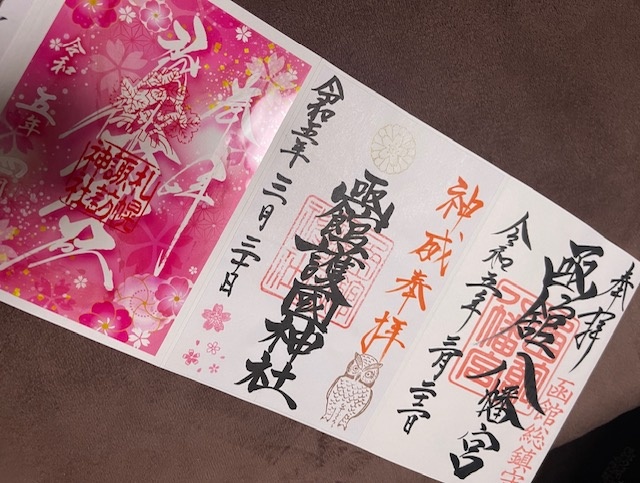 奉拝
函館総鎮守
函館八幡宮
令和五年
神威奉拝
函館護國神社
令和五年 三月 三十日
奉拝
札幌諏訪神社
令和 五年